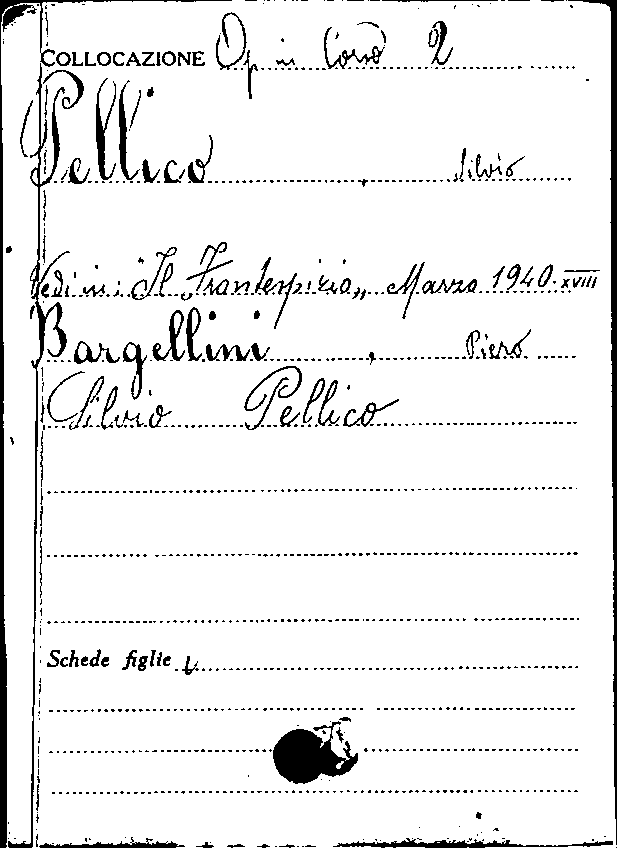 COLLOCAZIONE Op in Corso 2
Pellico, Silvio
Vedi in: "Il Frontespizio„ Marzo 1940-XVIII
Bargellini, Piero
Silvio Pellico
Schede figlie